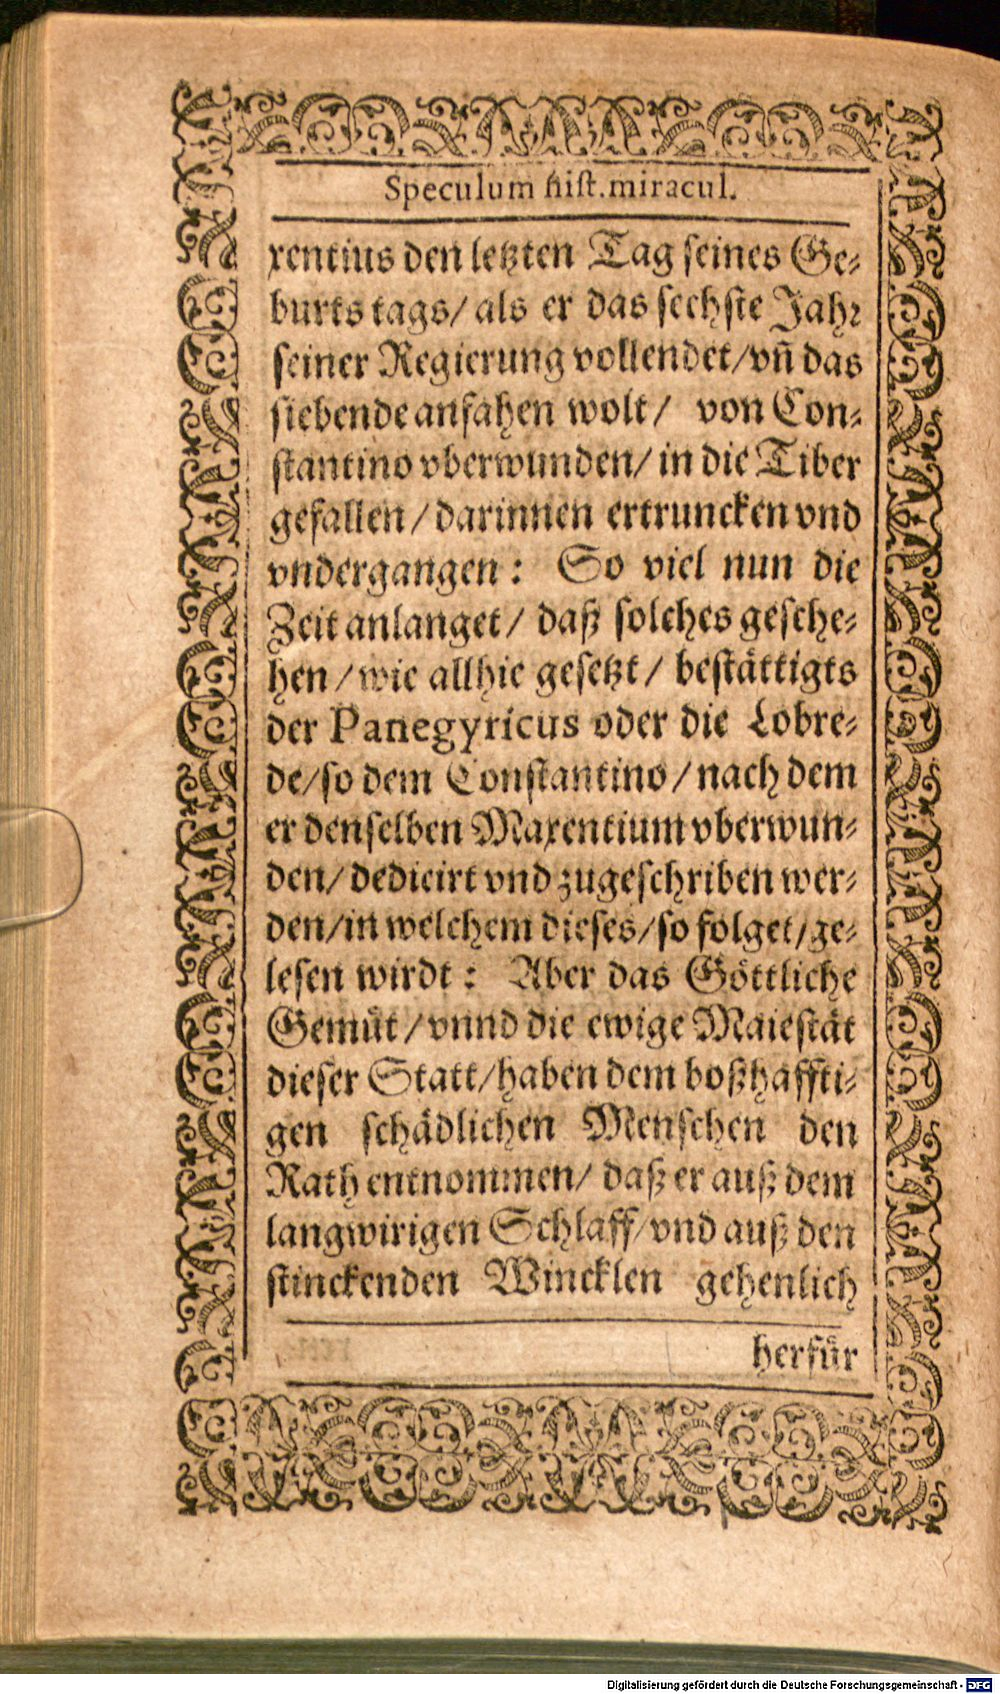 Speculum hist. miracul.
xentius den letzten Tag seines Ge-
burts tags/ als er das sechste Jahr
seiner Regierung vollendet/vñ das
siebende anfahen wolt/ von Con-
stantino vberwunden/ in die Tiber
gefallen/ darinnen ertruncken vnd
vndergangen: So viel nun die
Zeit anlanget/ daß solches gesche-
hen/ wie allhie gesetzt/ bestättigts
der Panegyricus oder die Lobre-
de/so dem Constantino/ nach dem
er denselben Maxentium vberwun-
den/ dedicirt vnd zugeschriben wer-
den/in welchem dieses/so folget/ge-
lesen wirdt: Aber das Göttliche
Gemüt/ vnnd die ewige Maiestät
dieser Statt/haben dem boßhaffti-
gen schädlichen Menschen den
Rath entnommen/ daß er auß dem
langwirigen Schlaff/vnd auß den
stinckenden Wincklen gehenlich
herfür
Digitalisierung gefördert durch die Deutsche Forschungsgemeinschaft - DFG